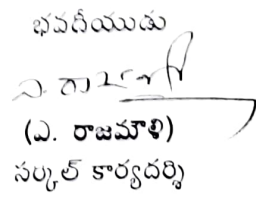 భవదీయుడు
(ఎ. రాజమౌళి)
సర్కిల్ కార్యదర్శి